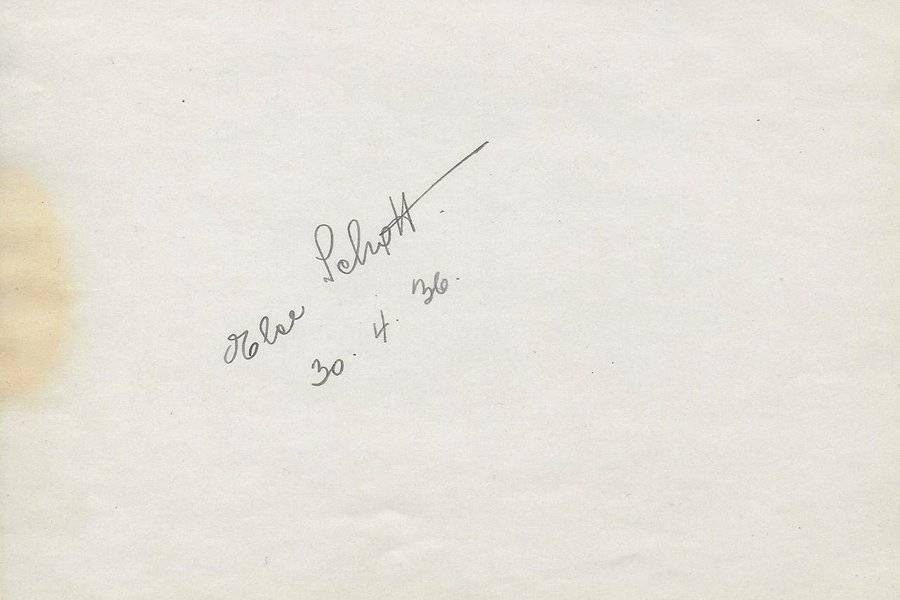 Else Schott
30. 4. 36.